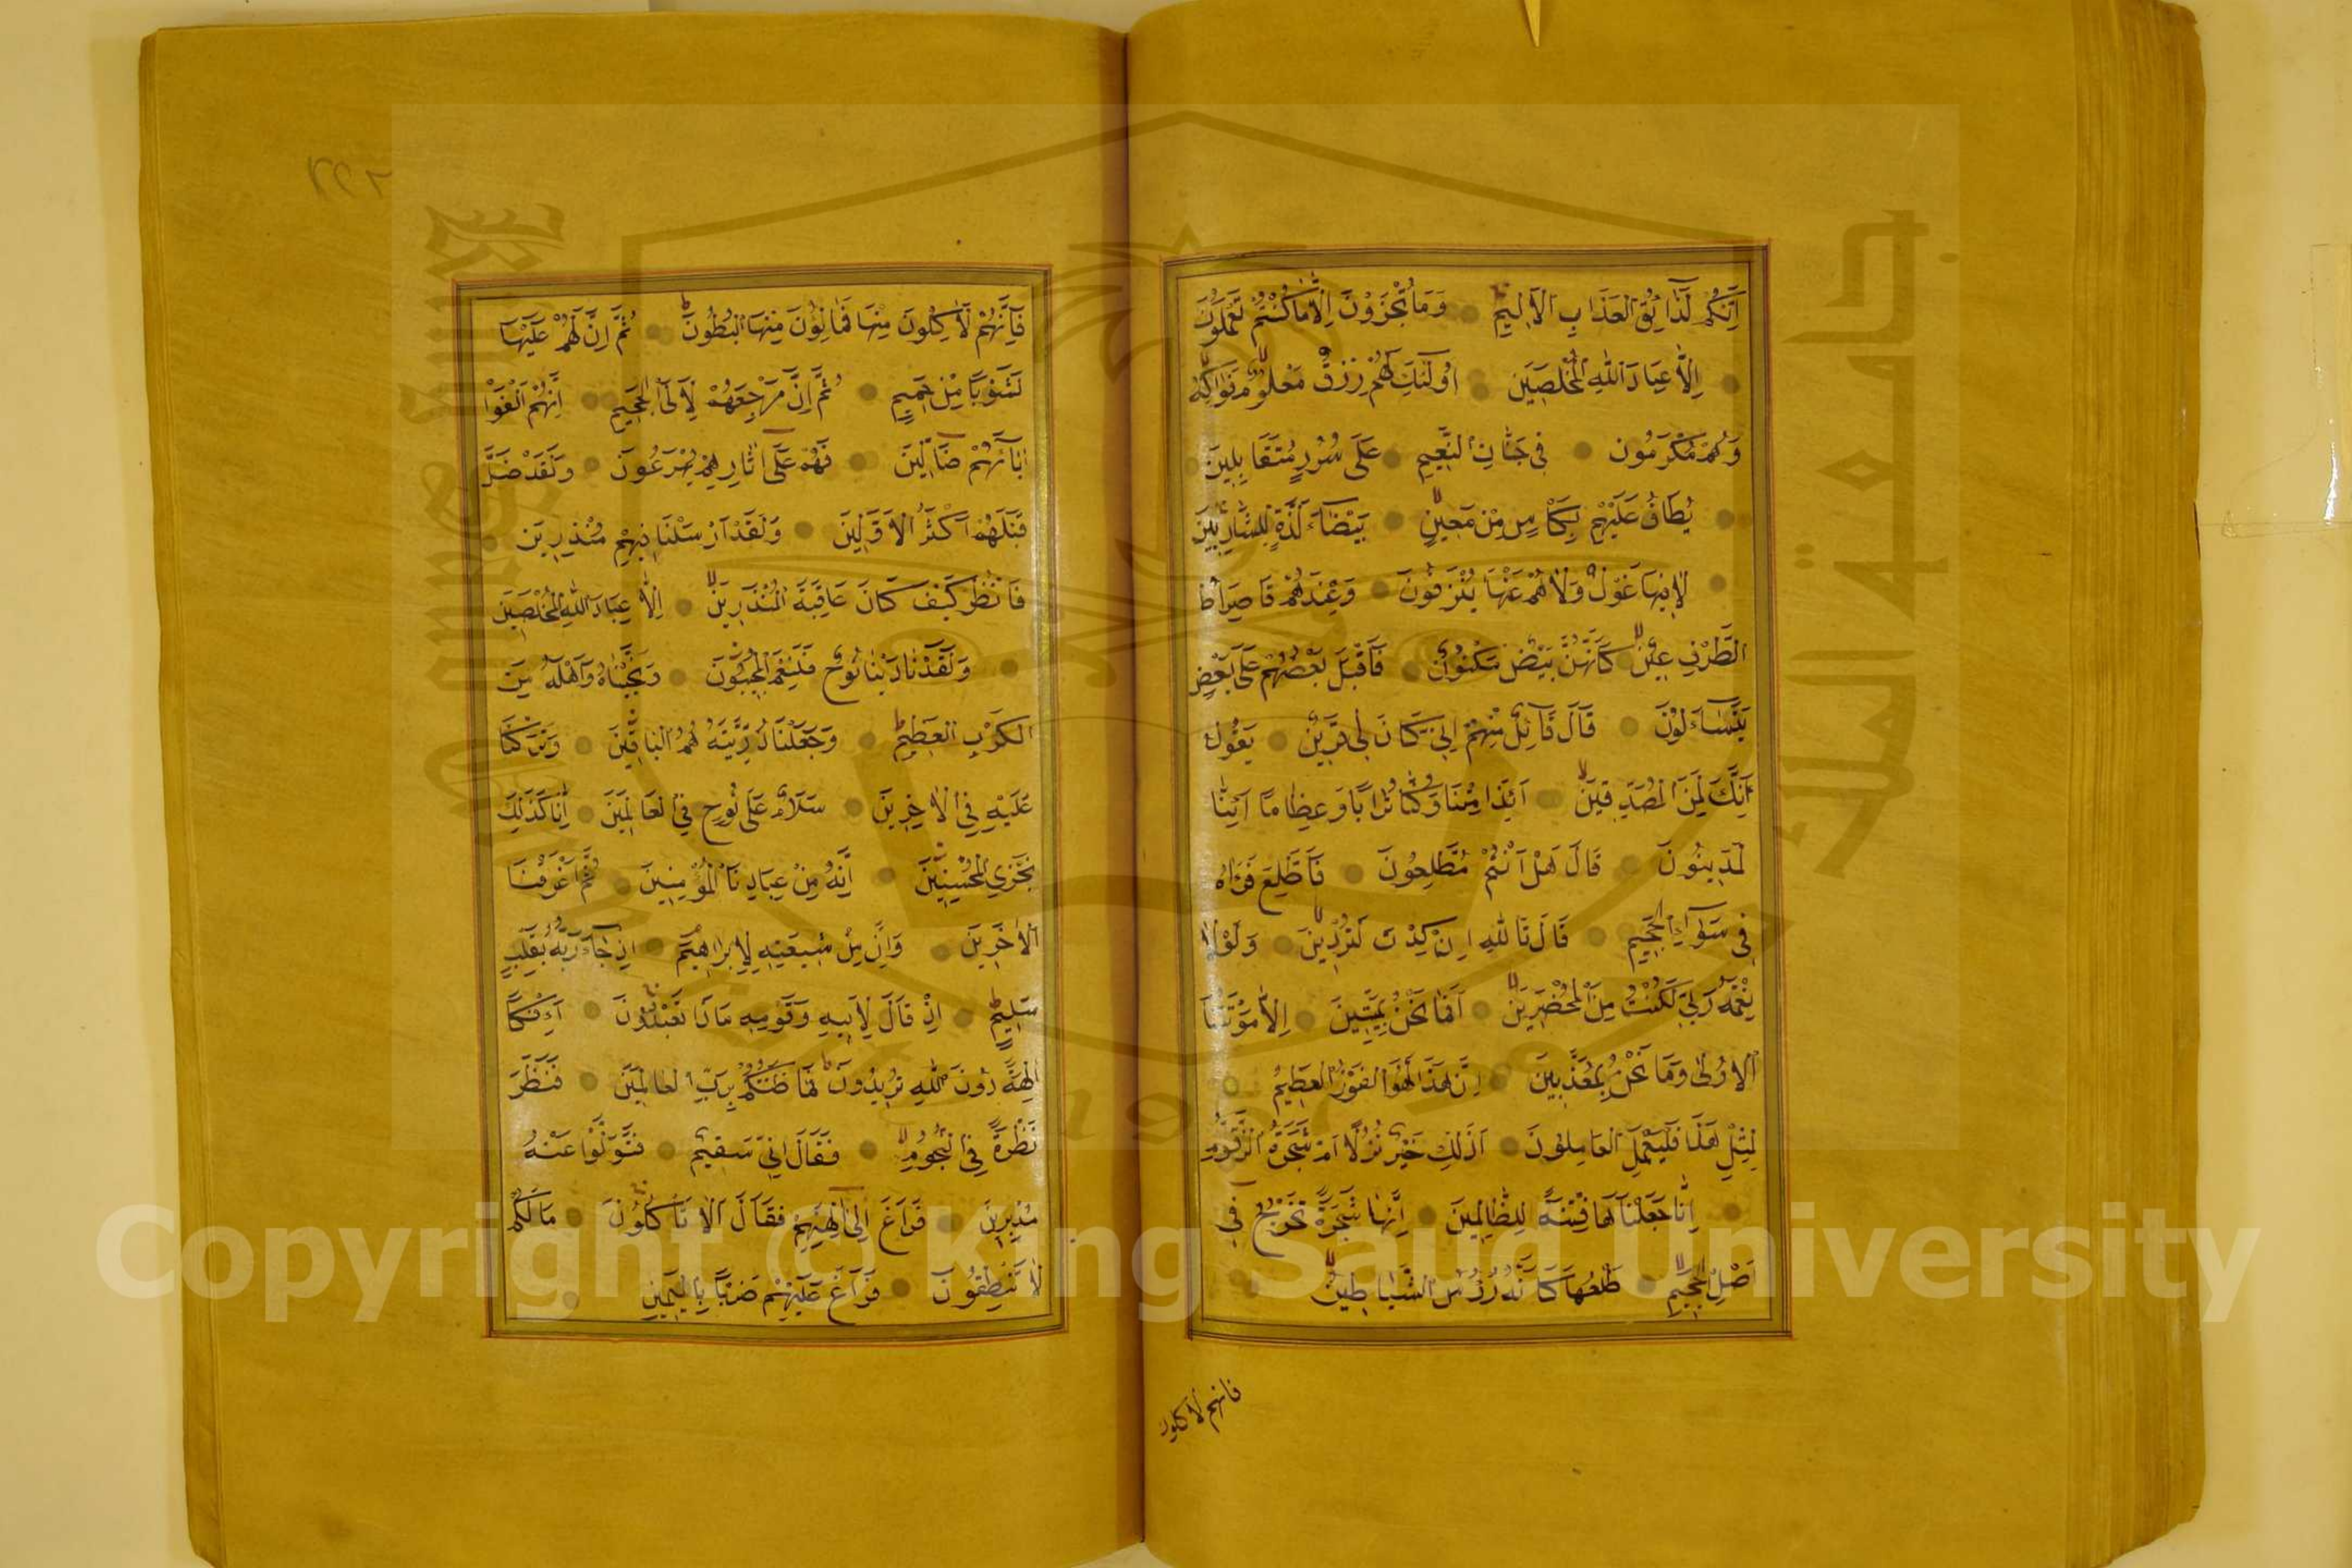 اِنَّكُمْ لَذَآئِقُ الْعَذَابِ الْاَلِيمِ وَمَا تُجْزَوْنَ اِلَّا مَا كُنْتُمْ تَعْمَلُونَ
اِلَّا عِبَادَ اللّٰهِ الْمُخْلَصِينَ اُولٰٓئِكَ لَهُمْ رِزْقٌ مَعْلُومٌ فَوَاكِهُ
وَهُمْ مُكْرَمُونَ فِى جَنَّاتِ النَّعِيمِ عَلٰى سُرُرٍ مُتَقَابِلِينَ
يُطَافُ عَلَيْهِمْ بِكَأْسٍ مِنْ مَعِينٍ بَيْضَآءَ لَذَّةٍ لِلشَّارِبِينَ
لَا فِيهَا غَوْلٌ وَلَا هُمْ عَنْهَا يُنْزَفُونَ وَعِنْدَهُمْ قَاصِرَاتُ
الطَّرْفِ عِينٌ كَاَنَّهُنَّ بَيْضٌ مَكْنُونٌ فَاَقْبَلَ بَعْضُهُمْ عَلٰى بَعْضٍ
يَتَسَآءَلُونَ قَالَ قَآئِلٌ مِنْهُمْ اِنِّى كَانَ لِى قَرِينٌ يَقُولُ
اَئِنَّكَ لَمِنَ الْمُصَدِّقِينَ اَئِذَا مِتْنَا وَكُنَّا تُرَابًا وَعِظَامًا اَئِنَّا
لَمَدِينُونَ قَالَ هَلْ اَنْتُمْ مُطَّلِعُونَ فَاطَّلَعَ فَرَاٰهُ
فِى سَوَآءِ الْجَحِيمِ قَالَ تَاللّٰهِ اِنْ كِدْتَ لَتُرْدِينِ وَلَوْلَا
نِعْمَةُ رَبِّى لَكُنْتُ مِنَ الْمُحْضَرِينَ اَفَمَا نَحْنُ بِمَيِّتِينَ اِلَّا مَوْتَتَنَا
الْاُولٰى وَمَا نَحْنُ بِمُعَذَّبِينَ اِنَّ هٰذَا لَهُوَ الْفَوْزُ الْعَظِيمُ
لِمِثْلِ هٰذَا فَلْيَعْمَلِ الْعَامِلُونَ اَذٰلِكَ خَيْرٌ نُزُلًا اَمْ شَجَرَةُ الزَّقُّومِ
اِنَّا جَعَلْنَاهَا فِتْنَةً لِلظَّالِمِينَ اِنَّهَا شَجَرَةٌ تَخْرُجُ فِى
اَصْلِ الْجَحِيمِ طَلْعُهَا كَاَنَّهُ رُؤُسُ الشَّيَاطِينِ
فانهم لاكلون
فَاِنَّهُمْ لَاٰكِلُونَ مِنْهَا فَمَالِؤُنَ مِنْهَا الْبُطُونَ ثُمَّ اِنَّ لَهُمْ عَلَيْهَا
لَشَوْبًا مِنْ حَمِيمٍ ثُمَّ اِنَّ مَرْجِعَهُمْ لَاِلَى الْجَحِيمِ اِنَّهُمْ اَلْفَوْا
اٰبَآءَهُمْ ضَآلِّينَ فَهُمْ عَلٰٓى اٰثَارِهِمْ يُهْرَعُونَ وَلَقَدْ ضَلَّ
قَبْلَهُمْ اَكْثَرُ الْاَوَّلِينَ وَلَقَدْ اَرْسَلْنَا فِيهِمْ مُنْذِرِينَ
فَانْظُرْ كَيْفَ كَانَ عَاقِبَةُ الْمُنْذَرِينَ اِلَّا عِبَادَ اللّٰهِ الْمُخْلَصِينَ
وَلَقَدْ نَادٰينَا نُوحٌ فَلَنِعْمَ الْمُجِيبُونَ وَنَجَّيْنَاهُ وَاَهْلَهُ مِنَ
الْكَرْبِ الْعَظِيمِ وَجَعَلْنَا ذُرِّيَّتَهُ هُمُ الْبَاقِينَ وَتَرَكْنَا
عَلَيْهِ فِى الْاٰخِرِينَ سَلَامٌ عَلٰى نُوحٍ فِى الْعَالَمِينَ اِنَّا كَذٰلِكَ
نَجْزِى الْمُحْسِنِينَ اِنَّهُ مِنْ عِبَادِنَا الْمُؤْمِنِينَ ثُمَّ اَغْرَقْنَا
الْاٰخَرِينَ وَاِنَّ مِنْ شِيعَتِهِ لَاِبْرَاهِيمَ اِذْ جَآءَ رَبَّهُ بِقَلْبٍ
سَلِيمٍ اِذْ قَالَ لِاَبِيهِ وَقَوْمِهِ مَاذَا تَعْبُدُونَ اَئِفْكًا
اٰلِهَةً دُونَ اللّٰهِ تُرِيدُونَ فَمَا ظَنُّكُمْ بِرَبِّ الْعَالَمِينَ فَنَظَرَ
نَظْرَةً فِى النُّجُومِ فَقَالَ اِنِّى سَقِيمٌ فَتَوَلَّوْا عَنْهُ
مُدْبِرِينَ فَرَاغَ اِلٰٓى اٰلِهَتِهِمْ فَقَالَ اَلَا تَأْكُلُونَ مَالَكُمْ
لَا تَنْطِقُونَ فَرَاغَ عَلَيْهِمْ ضَرْبًا بِالْيَمِينِ
جامعة الملك سعود
King Saud University
1957
Copyright © King Saud University